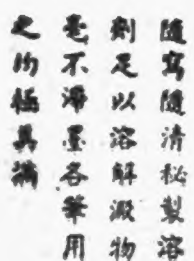 隨寫隨清秘製溶
劑足以溶解澱物
毫不滯墨各筆用
之均極異滿